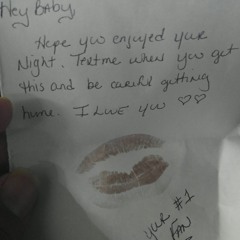 Hey BABY
Hope you enjoyed your
Night. Text me when you get
this and be careful getting
home. I Love you ♡♡
your #1
FAN